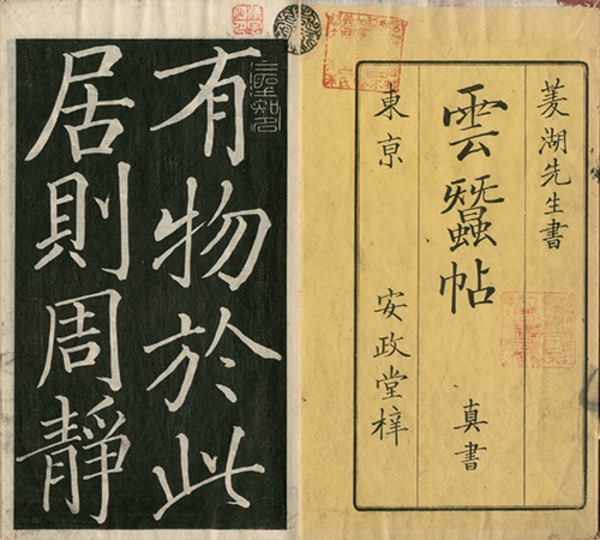 菱湖先生書
雲蠶帖 真書
東亰 安政堂梓
有物於此
居則周靜